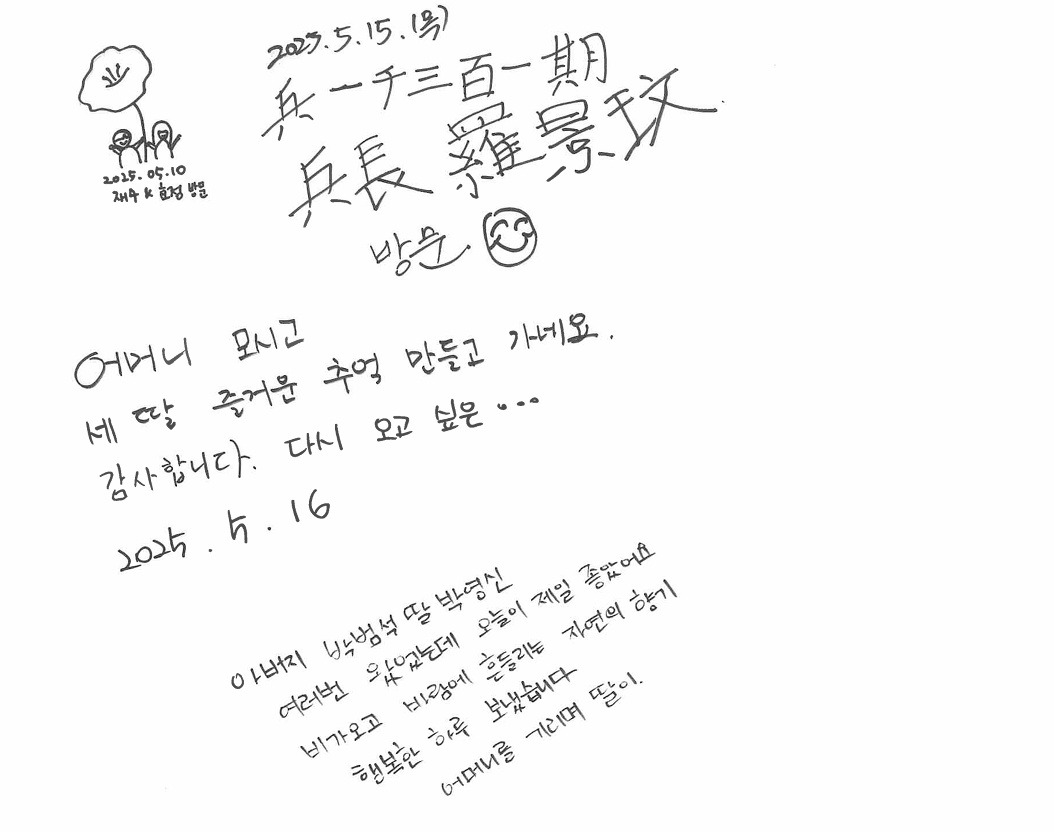 2025.05.10
재우 K 효정 방문
2025.5.15.(목)
兵一千三百一期
兵長 羅景玟
방문.
어머니 모시고
세 딸 즐거운 추억 만들고 가네요.
감사합니다. 다시 오고 싶은...
2025.5.16
아버지 박범석 딸 박영신
여러번 왔었는데 오늘이 제일 좋았어요
비가오고 바람에 흔들리는 자연의 향기
행복한 하루 보냈습니다
어머니를 기리며 딸이.